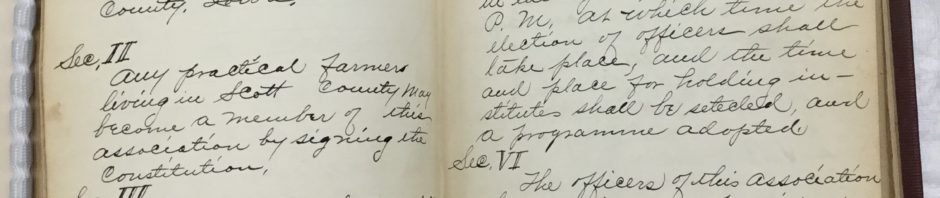 County, Iowa.
Sec, II
Any practical farmers
living in Scott County May
become a member of this
association by signing the
Constitution,
Sec, III
P. M, at which time the
election of officers shall
take place, and the time
and place for holding in-
stitutes shall be selected, and
a programme adopted
Sec, VI
The officers of this Association